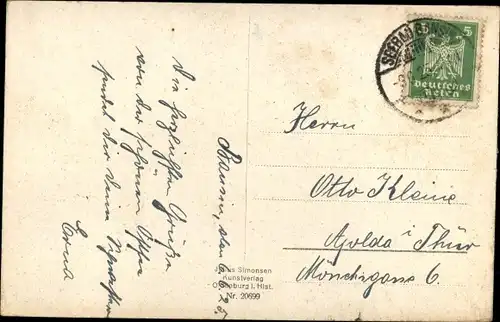 Die herzlichsten Grüße
von der schönen Ostsee
sendet dir dein
Erna
den 6.6.25.
Julius Simonsen
Kunstverlag
Oldenburg i. Hlst.
Nr. 20699
SEEBAD
5
Deutsches
Reich
Herrn
Otto Kleine
Apolda i Thür
Mönchsgasse 6.